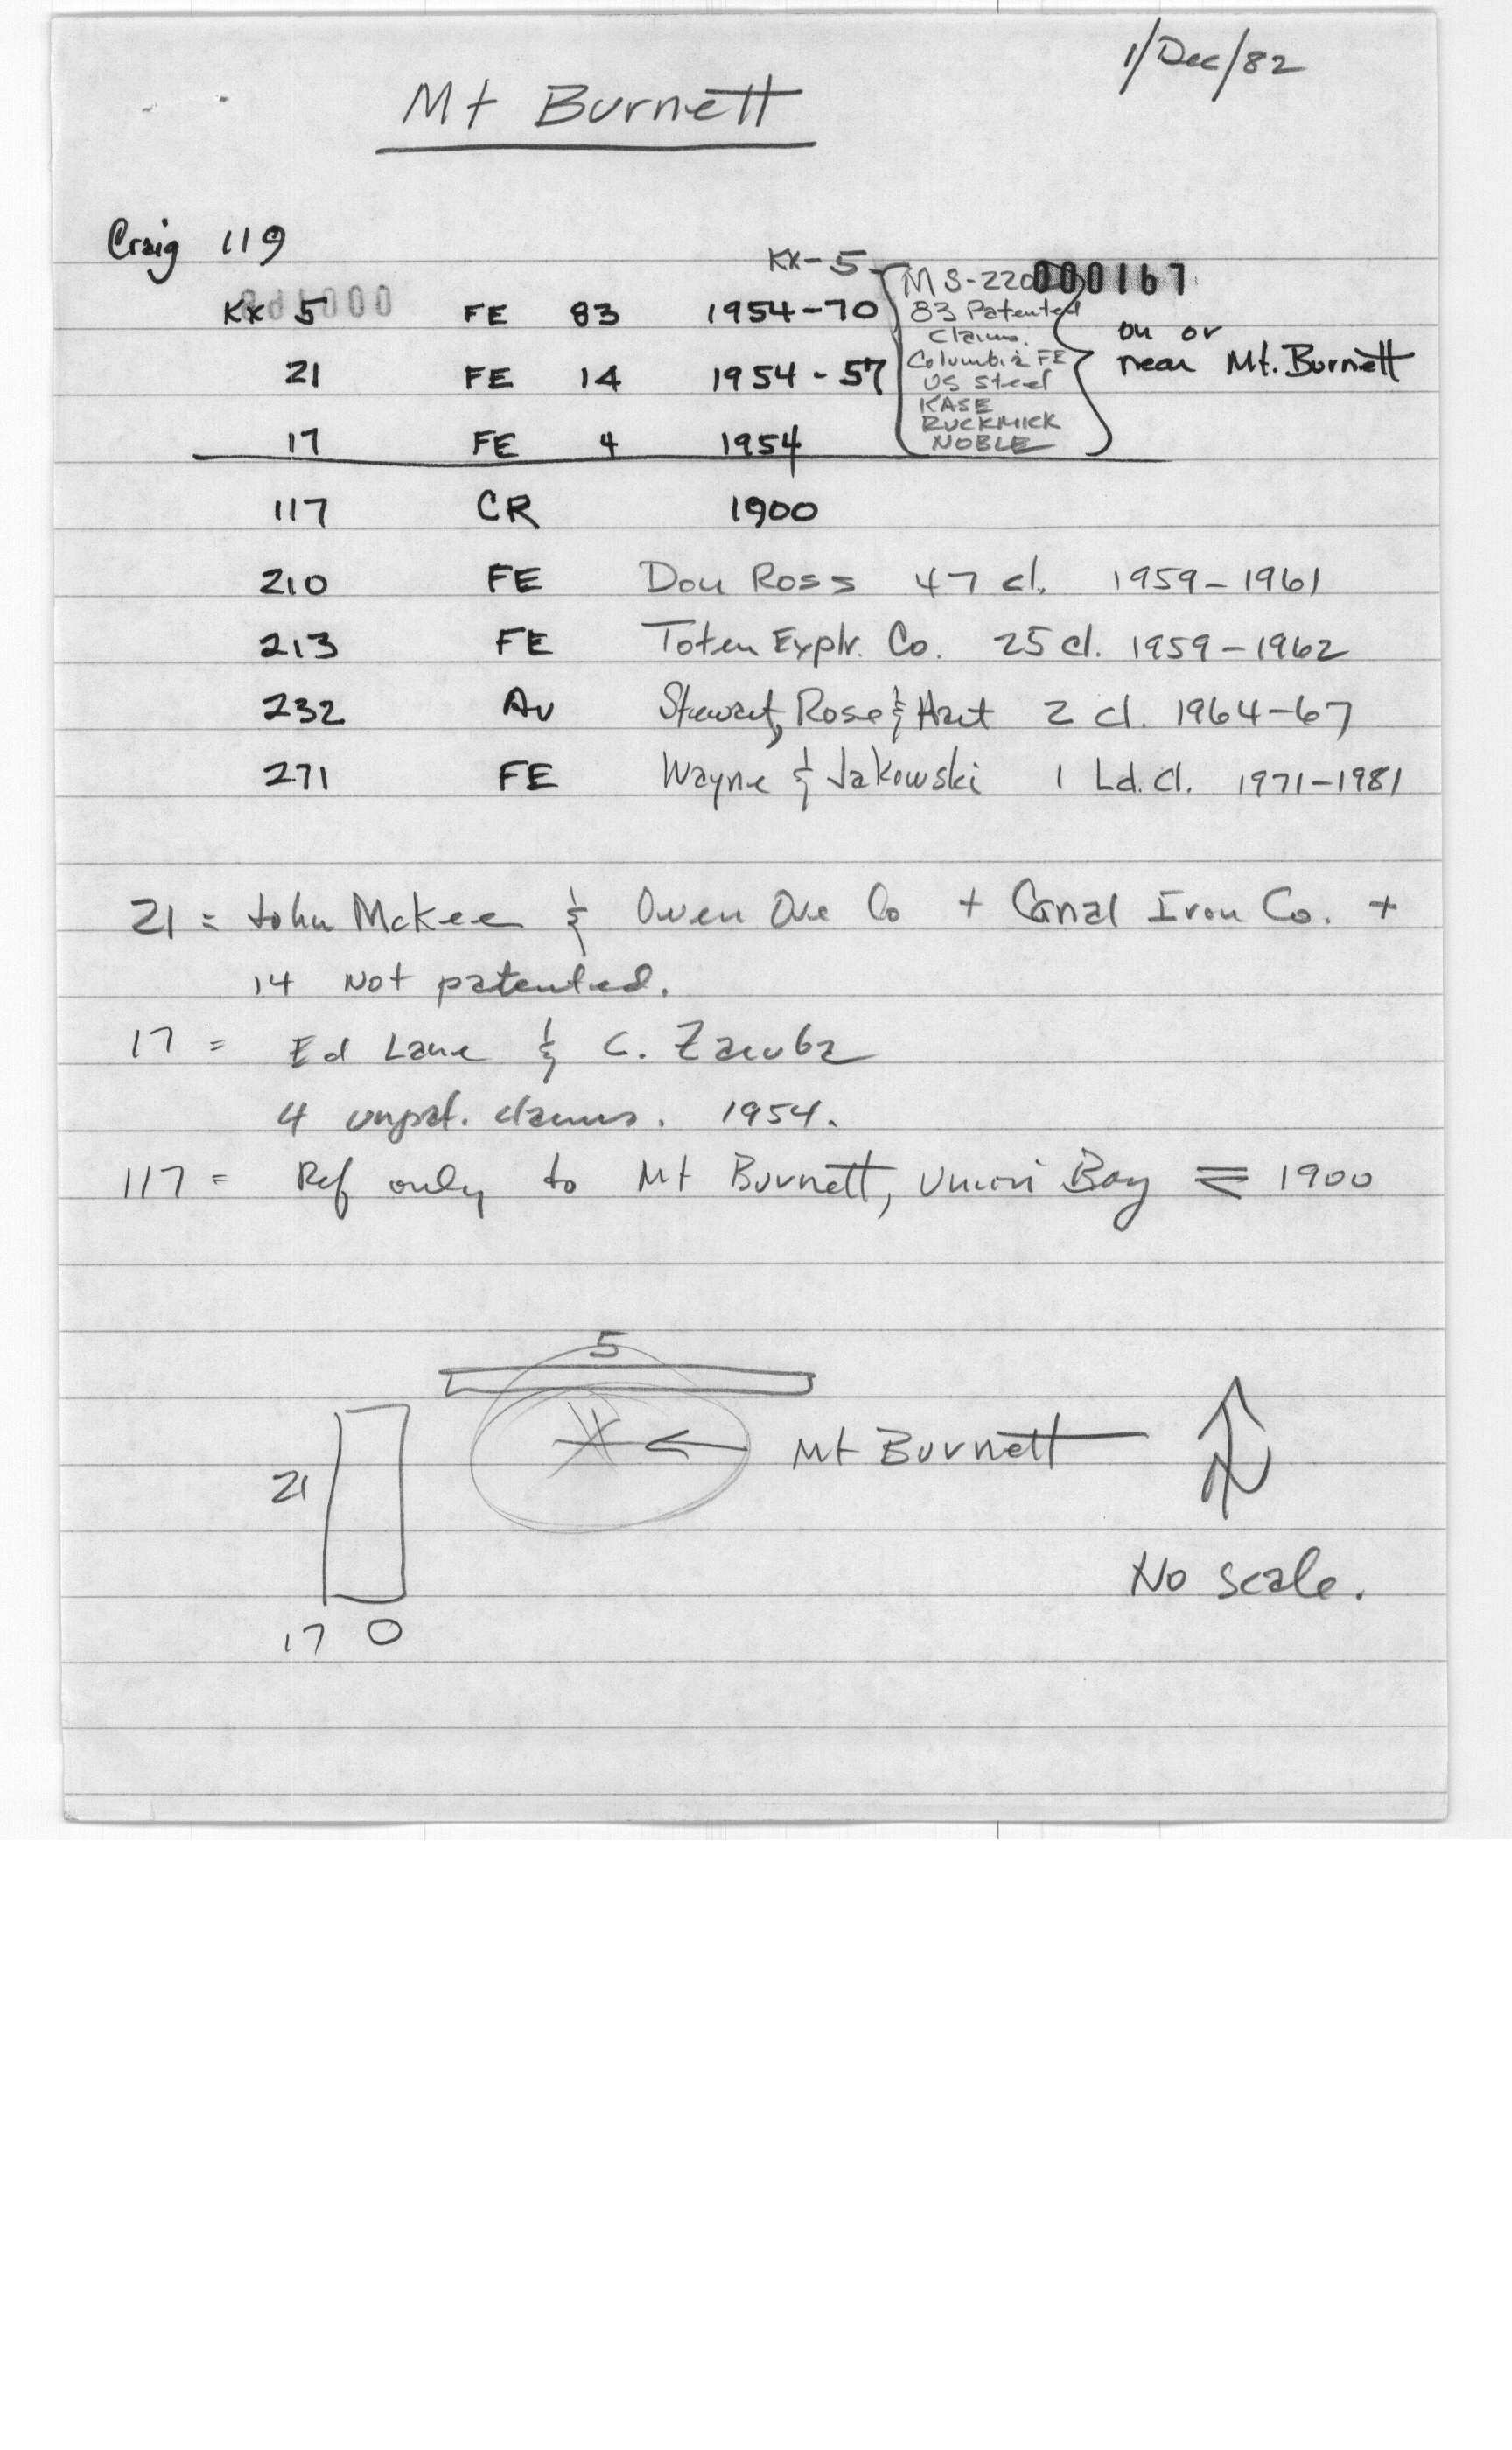 1/Dec/82
Mt Burnett
Craig 119
KK-5
MS-220
000167
KK 5 FE 83 1954-70
83 Patented
claims.
on or
near Mt. Burnett
21 FE 14 1954-57
Columbia FE
US Steel
KASE
RUCKMICK
NOBLE
17 FE 4 1954
117 CR 1900
210 FE Don Ross 47 cl. 1959-1961
213 FE Totem Explr. Co. 25 cl. 1959-1962
232 Au Stewart, Rose & Hart 2 cl. 1964-67
271 FE Wayne & Jakowski 1 Ld. Cl. 1971-1981
21 = John McKee & Owen Ore Co + Canal Iron Co. +
14 Not patented.
17 = Ed Lane & C. Zaruba
4 unpat. claims. 1954.
117 = Ref only to Mt Burnett, Union Bay ≤ 1900
5
21
Mt Burnett
N
No scale.
17